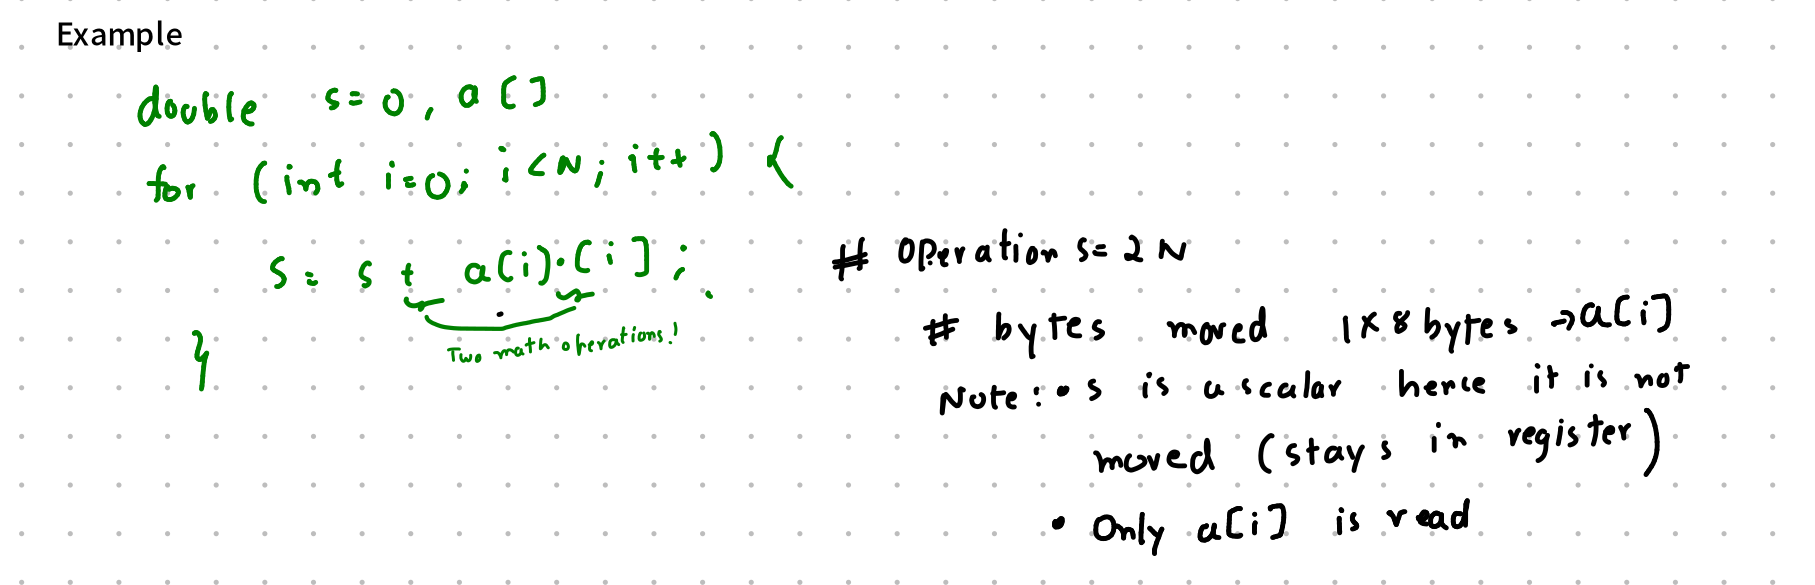 Example
double s=0, a[]
for (int i=0; i<N; i++) {
s = s + a[i]·[i];
Two math operations!
}
# Operations = 2N
# bytes moved 1×8 bytes → a[i]
Note: • s is a scalar hence it is not
moved (stays in register)
• Only a[i] is read